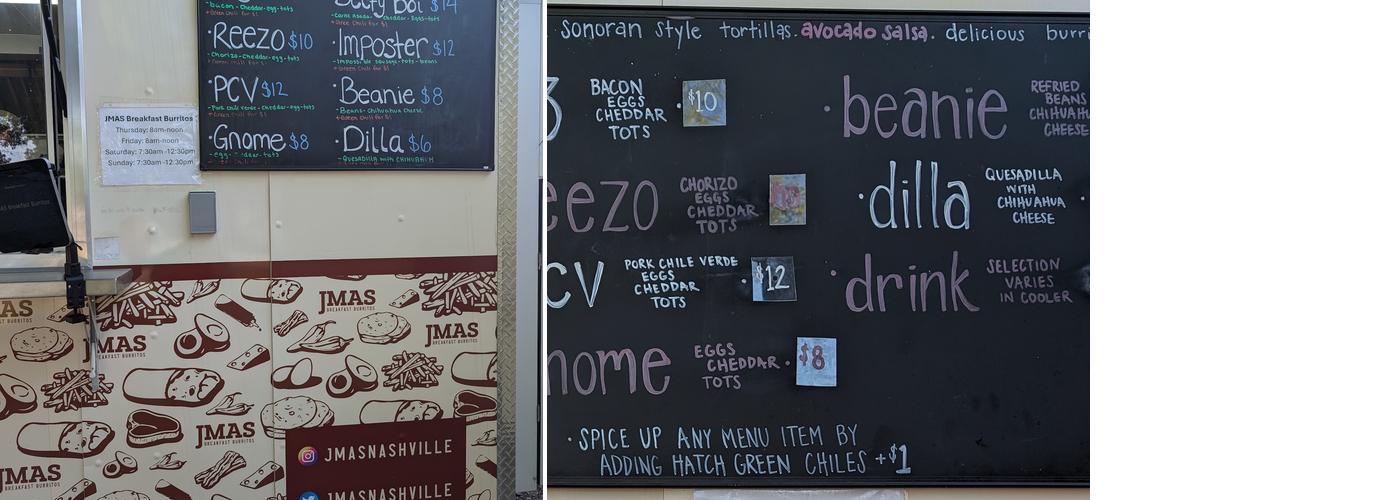 -bacon-cheddar-egg-tots
+Green Chili for $1
Beefy Boi $14
-Carne Asada-Cheddar-Eggs-tots
+Green Chili for $1
·Reezo $10
-Chorizo-Cheddar-egg-tots
+Green Chili for $1
·Imposter $12
-Impossible sausage-tots-beans
+Green Chili for $1
·PCV $12
-Pork chili verde-cheddar-egg-tots
+Green Chili for $1
·Beanie $8
-Beans-Chihuahua Cheese
+Green Chili for $1
·Gnome $8
·Dilla $6
-Quesadilla with CHIHUAHUA
JMAS Breakfast Burritos
Thursday: 8am-noon
Friday: 8am-noon
Saturday: 7:30am -12:30pm
Sunday: 7:30am -12:30pm
JMAS
BREAKFAST BURRITOS
JMAS
BREAKFAST BURRITOS
JMAS
BREAKFAST BURRITOS
JMAS
BREAKFAST BURRITOS
JMAS
BREAKFAST BURRITOS
JMASNASHVILLE
JMASNASHVILLE
sonoran style tortillas. avocado salsa. delicious burri
BACON
EGGS
CHEDDAR
TOTS
$10
·beanie
REFRIED
BEANS
CHIHUAHU
CHEESE
eezo
CHORIZO
EGGS
CHEDDAR
TOTS
·dilla
QUESADILLA
WITH
CHIHUAHUA
CHEESE
CV
PORK CHILE VERDE
EGGS
CHEDDAR
TOTS
$12
·drink
SELECTION
VARIES
IN COOLER
nome
EGGS
CHEDDAR
TOTS
$8
·SPICE UP ANY MENU ITEM BY
ADDING HATCH GREEN CHILES +$1